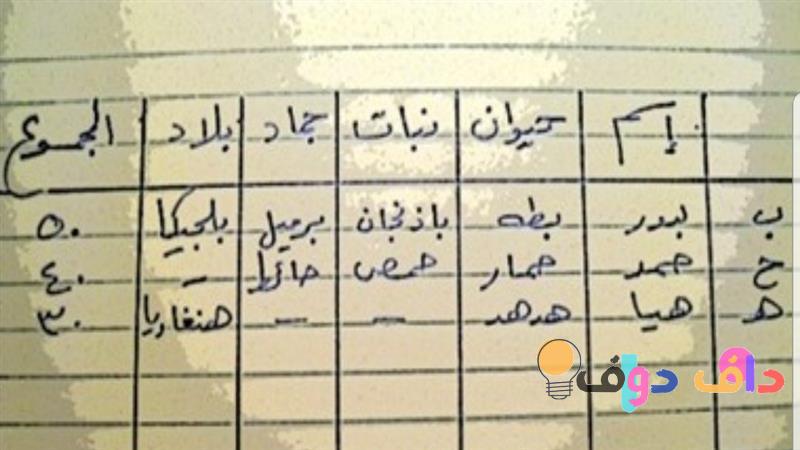 إسم حيوان نبات جماد بلاد المجموع
ب بدر بطه باذنجان برميل بلجيكيا ٥٠
ح حمد حمار حمص حائط - ٤٠
ه هيا هدهد - - هنغاريا ٣٠
داف دوف